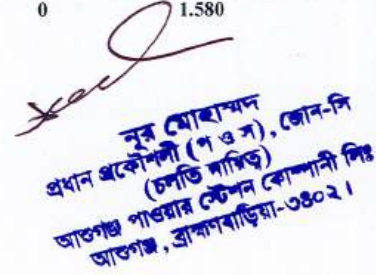 0 1.580
নুর মোহাম্মদ
প্রধান প্রকৌশলী (প ও স), জোন-সি
(চলতি দায়িত্ব)
আশুগঞ্জ পাওয়ার স্টেশন কোম্পানী লিঃ
আশুগঞ্জ, ব্রাহ্মণবাড়িয়া-৩৪০২।